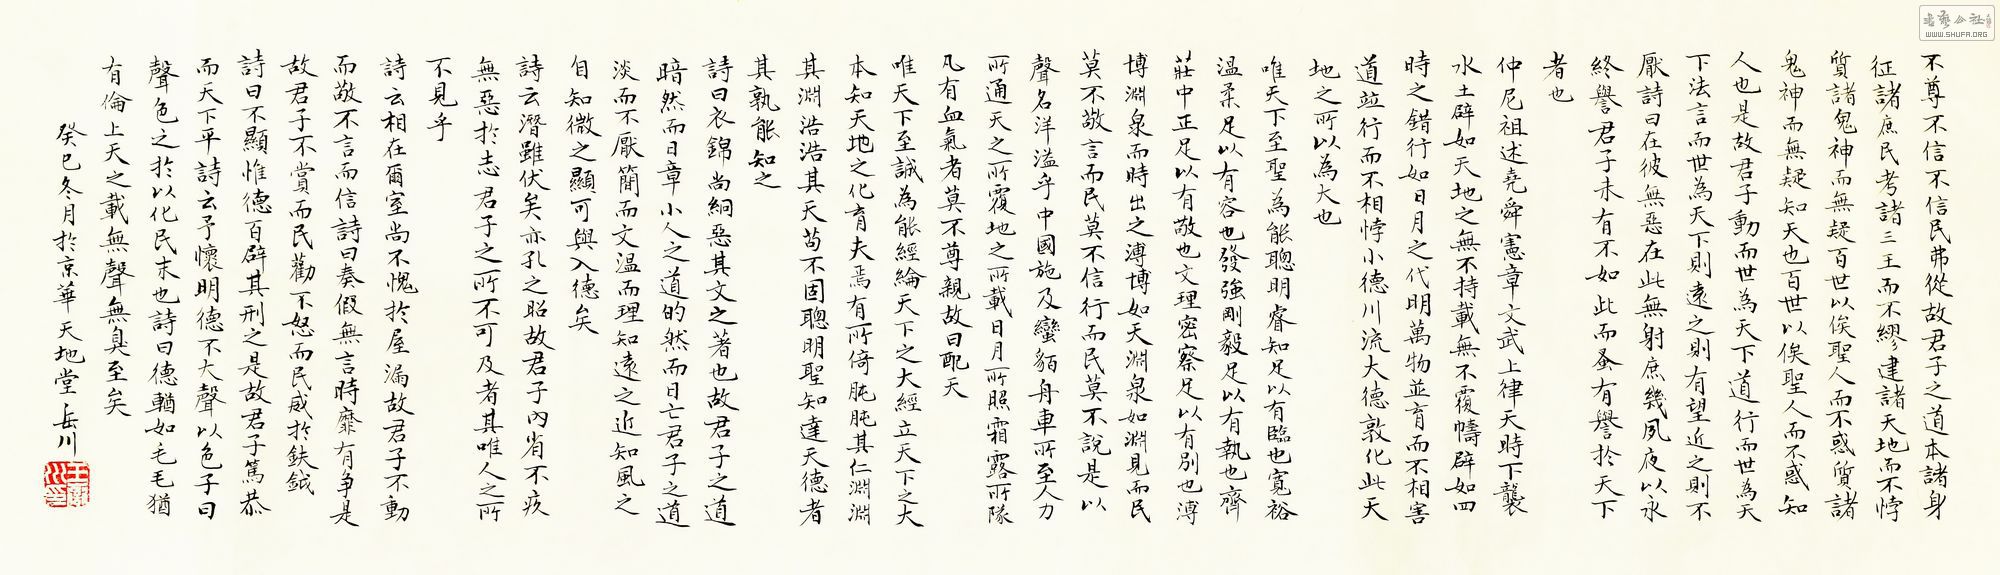 不尊不信不信民弗從故君子之道本諸身
征諸庶民考諸三王而不繆建諸天地而不悖
質諸鬼神而無疑百世以俟聖人而不惑質諸
鬼神而無疑知天也百世以俟聖人而不惑知
人也是故君子動而世為天下道行而世為天
下法言而世為天下則遠之則有望近之則不
厭詩曰在彼無惡在此無射庶幾夙夜以永
終譽君子未有不如此而蚤有譽於天下
者也
仲尼祖述堯舜憲章文武上律天時下襲
水土辟如天地之無不持載無不覆幬辟如四
時之錯行如日月之代明萬物並育而不相害
道竝行而不相悖小德川流大德敦化此天
地之所以為大也
唯天下至聖為能聰明睿知足以有臨也寬裕
溫柔足以有容也發強剛毅足以有執也齊
莊中正足以有敬也文理密察足以有別也溥
博淵泉而時出之溥博如天淵泉如淵見而民
莫不敬言而民莫不信行而民莫不說是以
聲名洋溢乎中國施及蠻貊舟車所至人力
所通天之所覆地之所載日月所照霜露所隊
凡有血氣者莫不尊親故曰配天
唯天下至誠為能經綸天下之大經立天下之大
本知天地之化育夫焉有所倚肫肫其仁淵淵
其淵浩浩其天苟不固聰明聖知達天德者
其孰能知之
詩曰衣錦尚絅惡其文之著也故君子之道
暗然而日章小人之道的然而日亡君子之道
淡而不厭簡而文温而理知遠之近知風之
自知微之顯可與入德矣
詩云潛雖伏矣亦孔之昭故君子內省不疚
無惡於志君子之所不可及者其唯人之所
不見乎
詩云相在爾室尚不愧於屋漏故君子不動
而敬不言而信詩曰奏假無言時靡有爭是
故君子不賞而民勸不怒而民威於鈇鉞
詩曰不顯惟德百辟其刑之是故君子篤恭
而天下平詩云予懷明德不大聲以色子曰
聲色之於以化民末也詩曰德輶如毛毛猶
有倫上天之載無聲無臭至矣
癸巳冬月於京華天地堂岳川
WWW.SHUFA.ORG